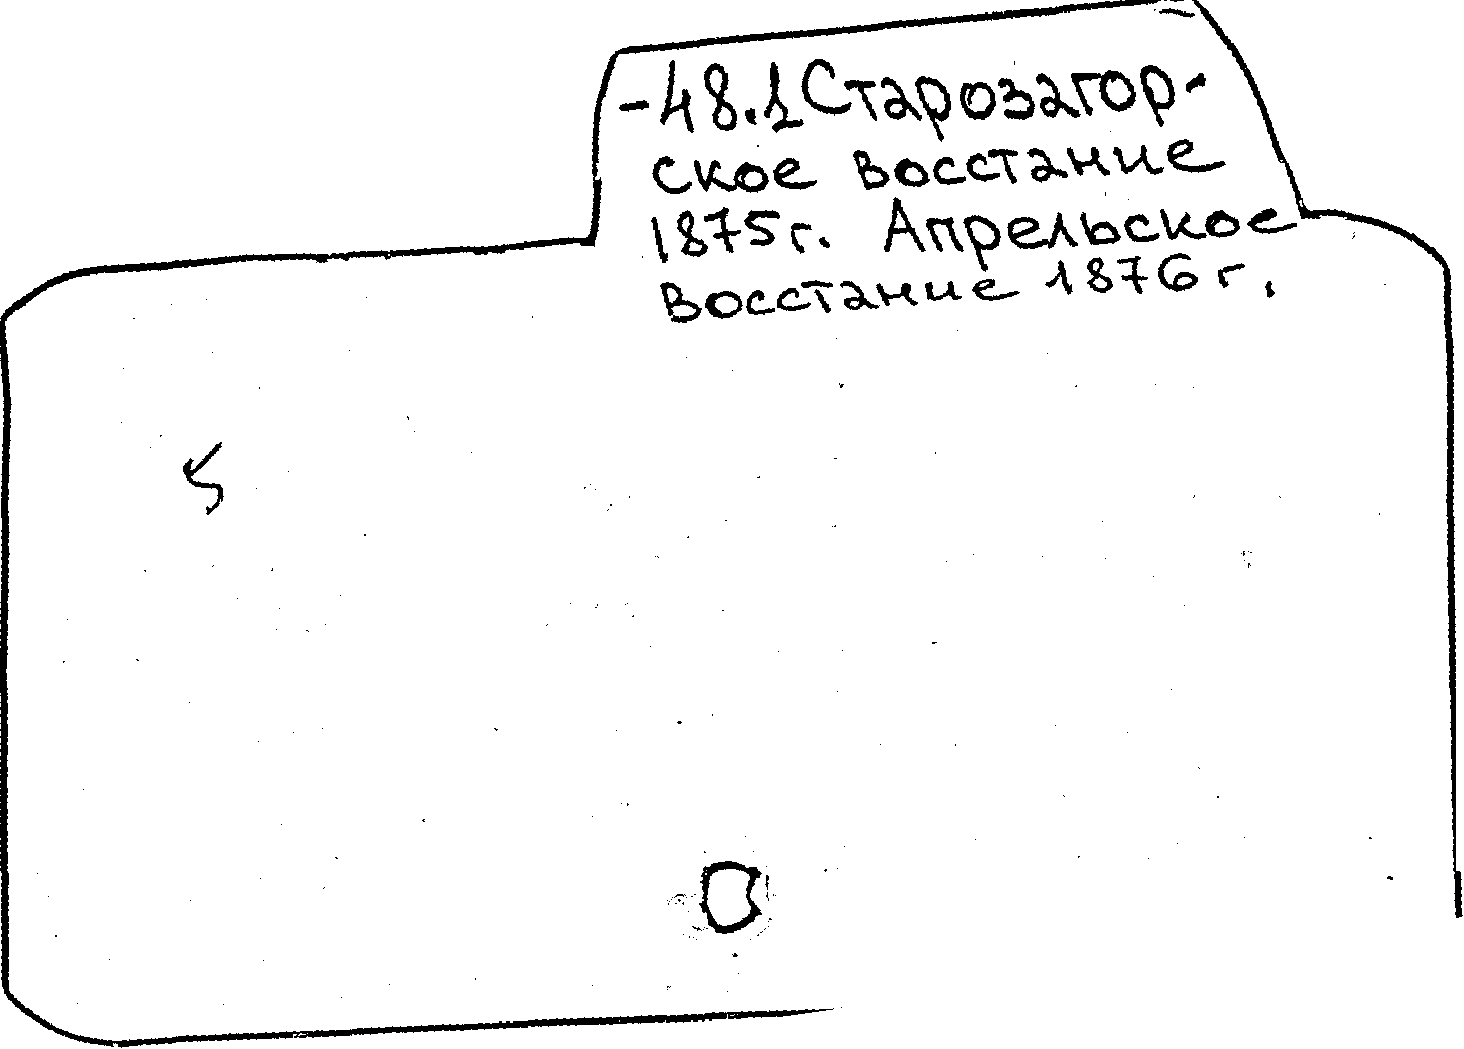 -48.1 Старозагор-
ское восстание
1875г. Апрельское
восстание 1876 г.